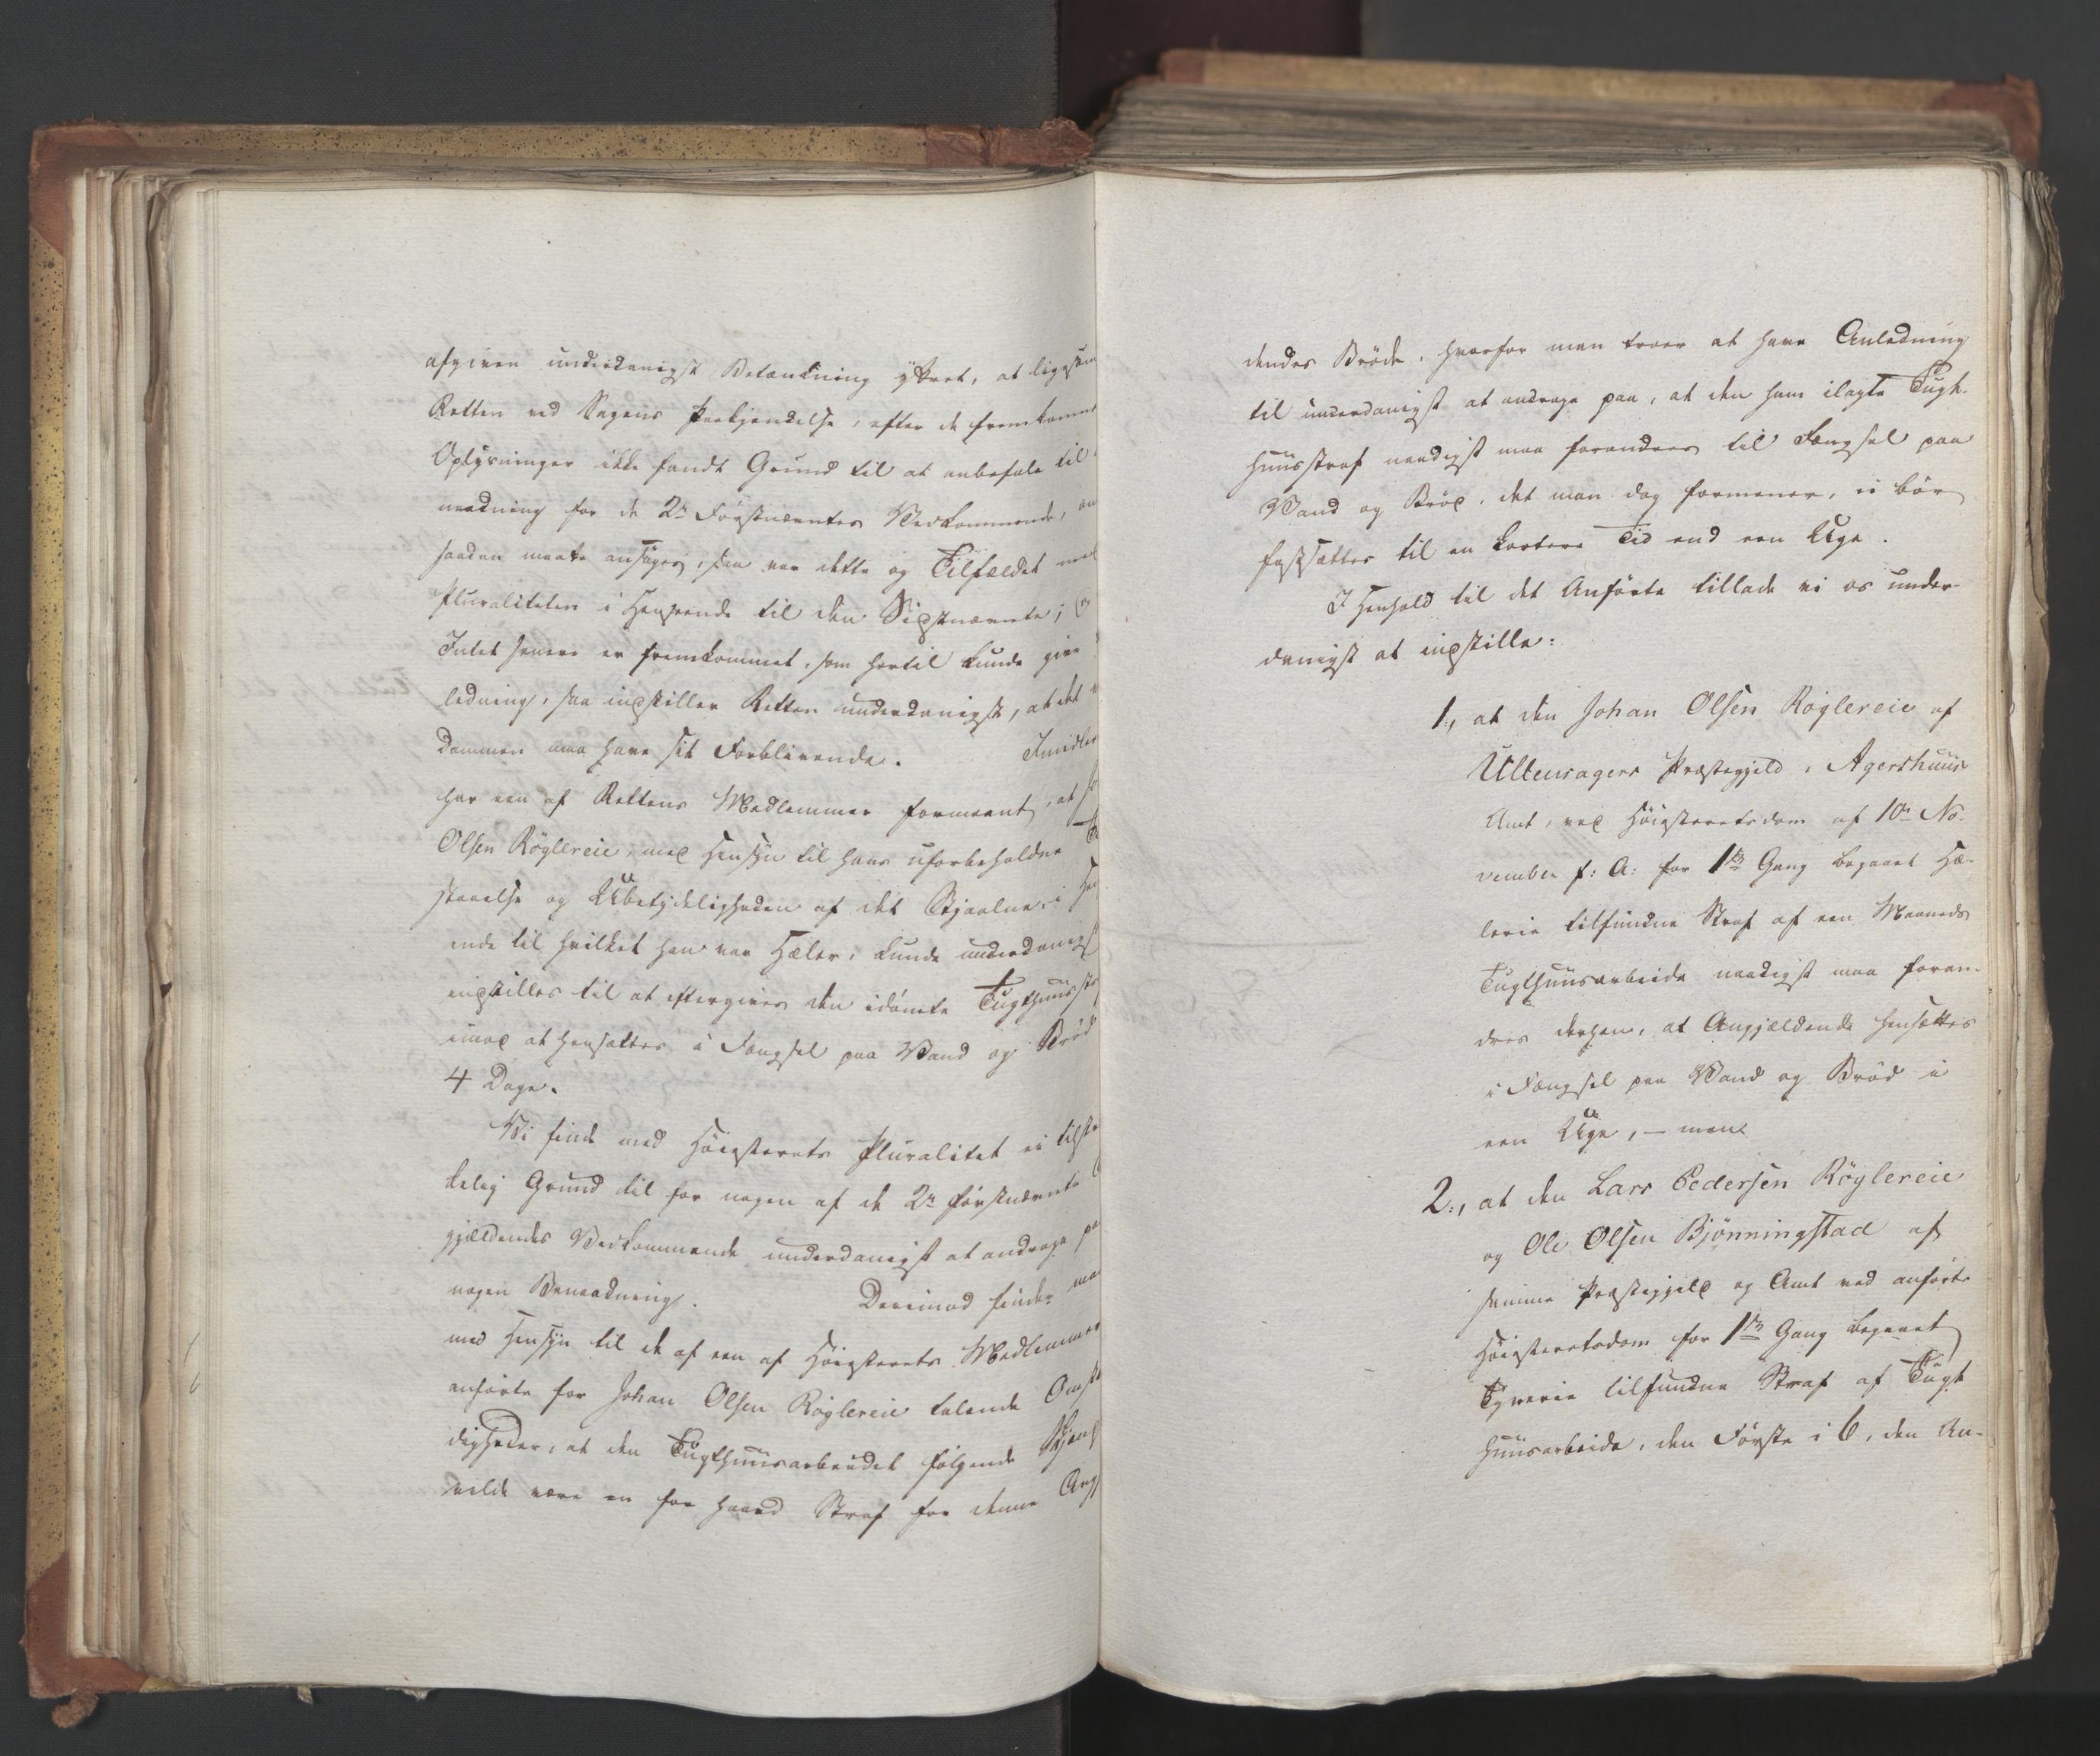 afgiven underdanigst Betænkning yttret, at ligesom
Retten ved Sagens Paakjendelse, efter de fremkomne
Oplysninger ikke fandt Grund til at anbefale til
naadning for de 2de Førstnævntes Vedkommende, om
saadan maatte ansøges, saa var dette og Tilfældet med
Pluraliteten i Henseende til den Sidstnævnte; og
Intet senere er fremkommet, som hertil kunde give
ledning, saa indstiller Retten underdanigst, at det
Dommen maa have sit Forblivende. Imidler
har een af Rettens Medlemmer formeent, at Jo
Olsen Røglereie, med Hensyn til hans uforbeholdne
staaelse og Ubetydeligheden af det Stjaalne, i Hen
ende til hvilket han var Hæler, kunde underdanigst
indstilles til at eftergives den idømte Tugthuusstr
imod at hensættes i Fængsel paa Vand og Brød
4 Dage.
Vi finde med Høiesterets Pluralitet ei tilstr
kelig Grund til for nogen af de 2de førstnævnte
gjældendes Vedkommende underdanigst at andrage paa
nogen Benaadning. Derimod finder man
med Hensyn til de af een af Høiesterets Medlemmer
anførte for Johan Olsen Røglereie talende Omst
digheder, at den Tugthuusarbeidet følgende Skjend
vilde være en for haard Straf for denne Ang
dendes Brøde, hvorfor man troer at have Anledning
til underdanigst at andrage paa, at den ham ilagte Tugt-
huusstraf naadigst maa forandres til Fængsel paa
Vand og Brød, det man dog formener, ei bør
fastsættes til en kortere Tid end een Uge.
I Henhold til det Anførte tillade vi os under-
danigst at indstille:
1., at den Johan Olsen Røglereie af
Ullensagers Præstegjeld, Agershuus
Amt, ved Høiesteretsdom af 10de No-
vember f: A: for 1ste Gang begaaet Hæ-
lerie tilfundne Straf af een Maaneds
Tugthuusarbeide naadigst maa foran-
dres derhen, at Angjældende hensættes
i Fængsel paa Vand og Brød i
een Uge, – men
2., at den Lars Pedersen Røglereie
og Ole Olsen Bjønningstad af
samme Præstegjeld og Amt ved anførte
Høiesteretsdom for 1ste Gang begaaet
Tyverie tilfundne Straf af Tugt
huusarbeide, den Første i 6, den An-